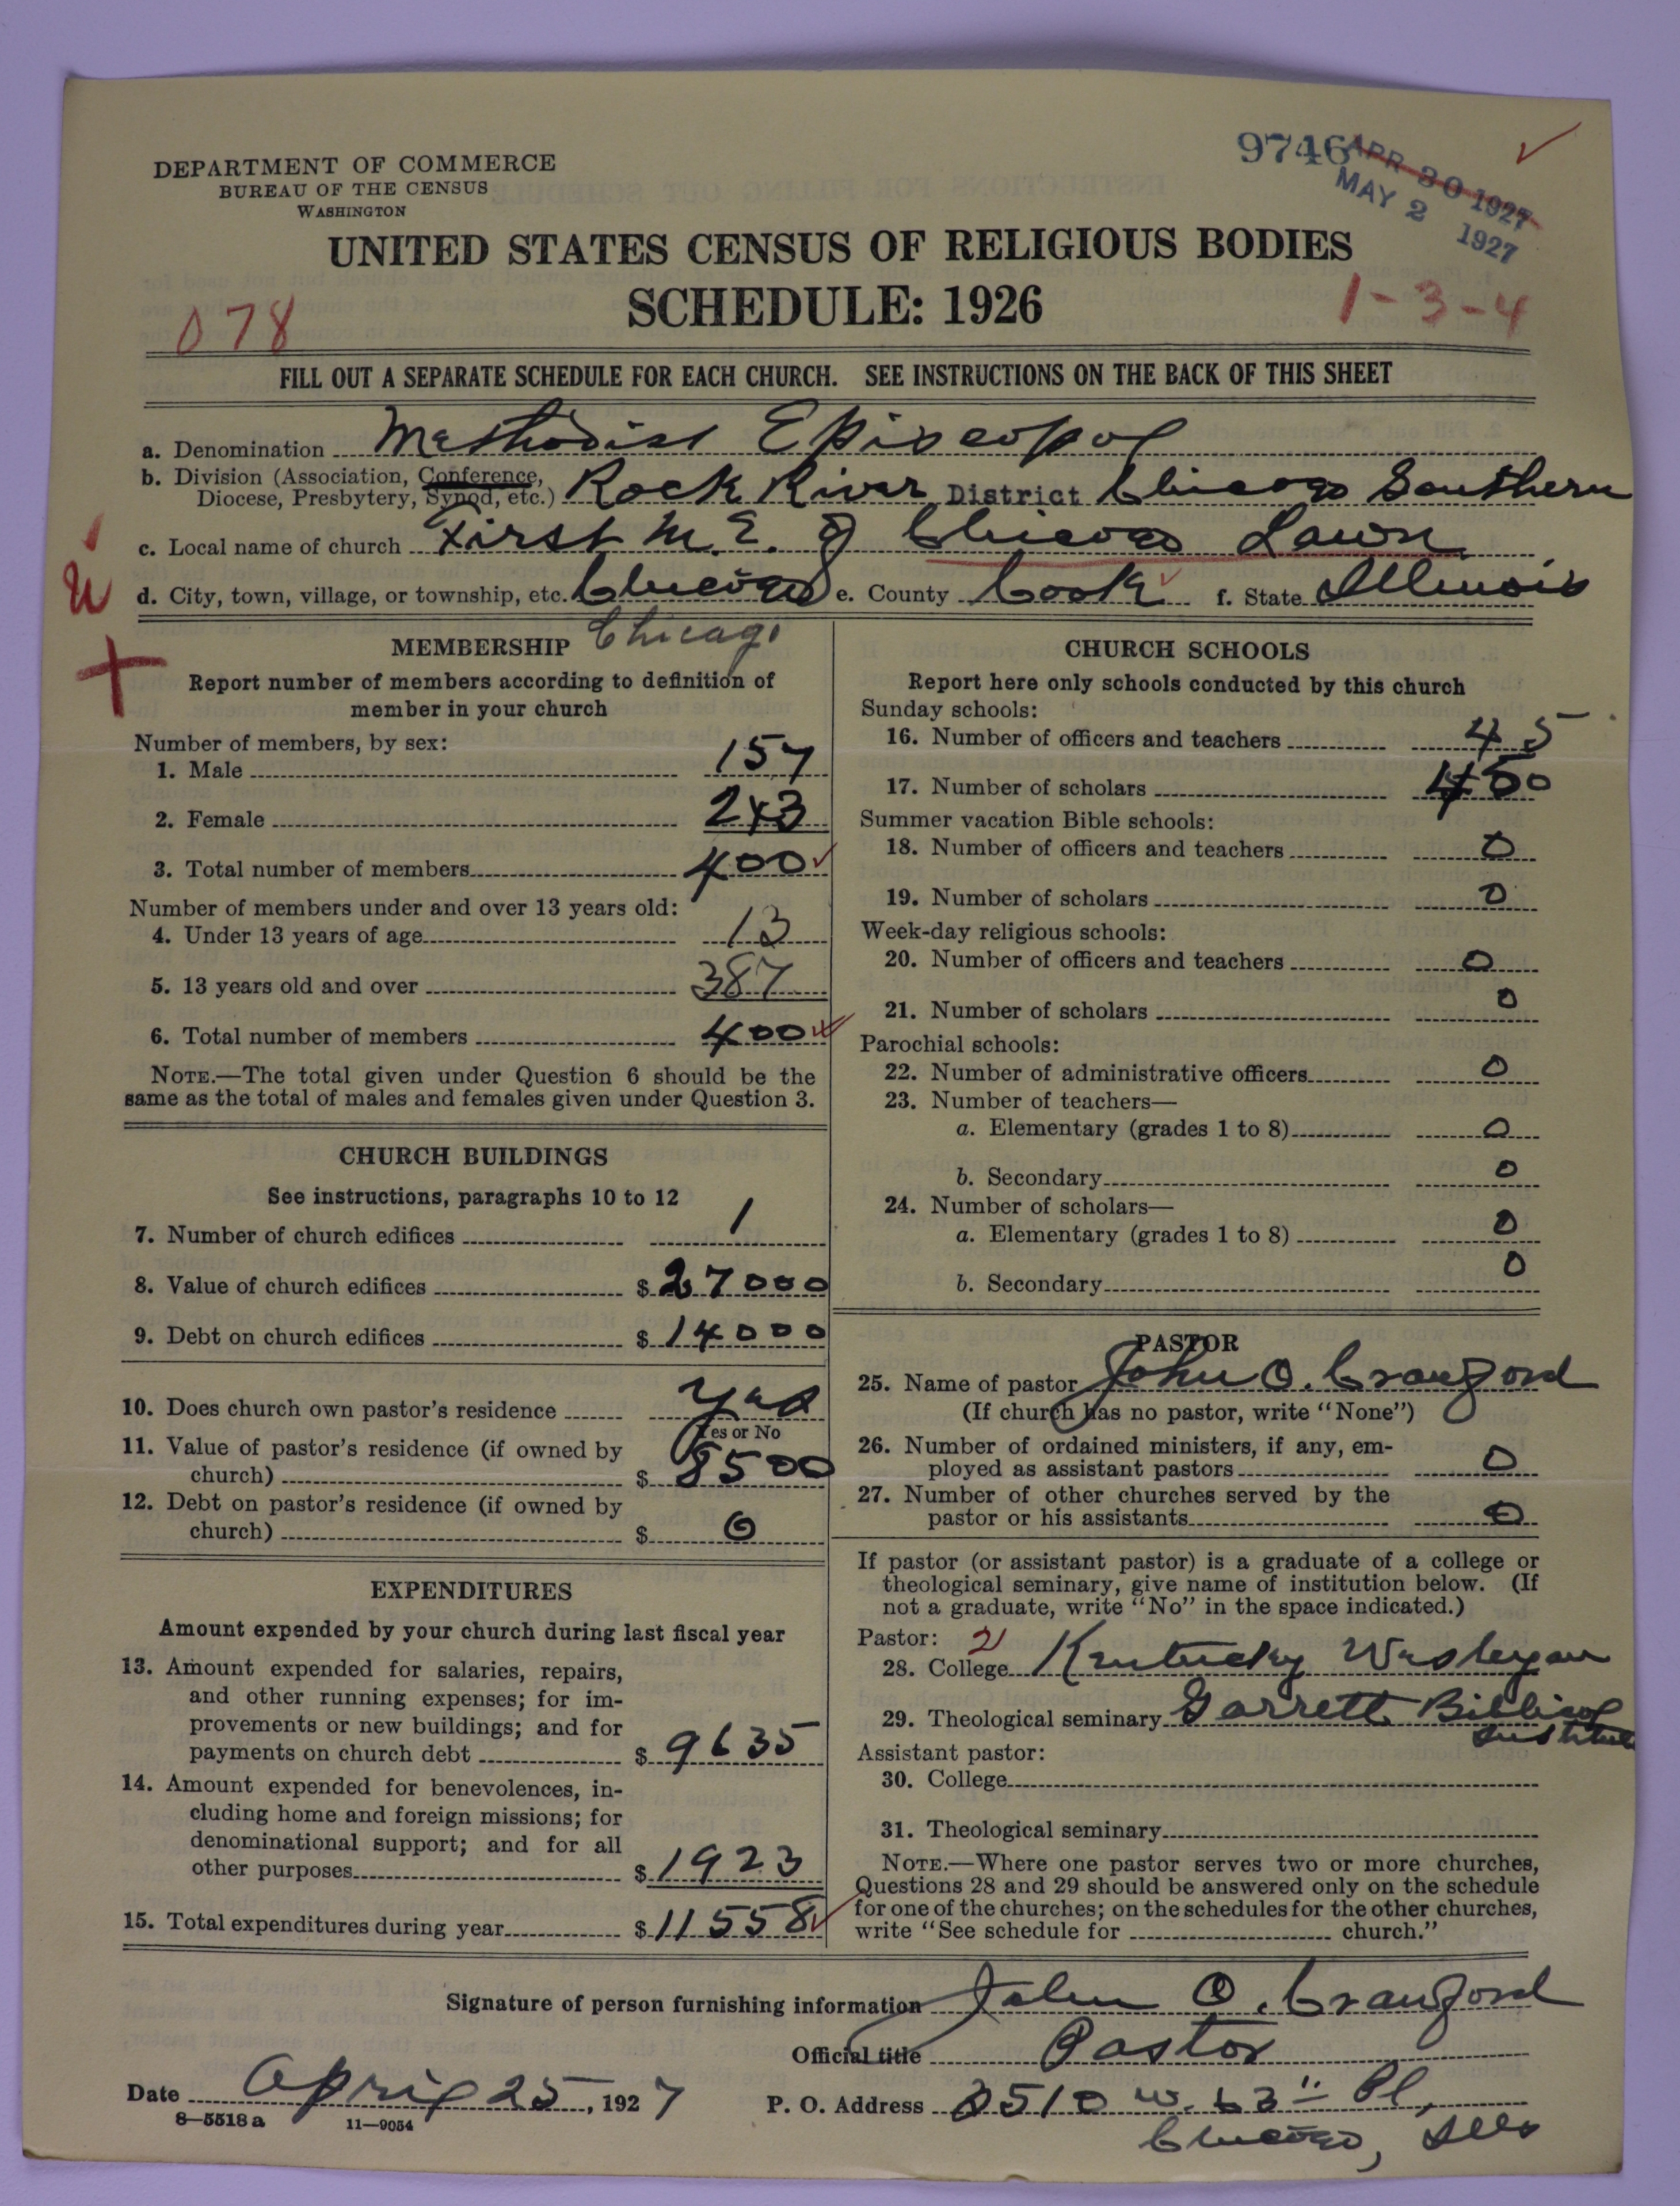 DEPARTMENT OF COMMERCE
BUREAU OF THE CENSUS
WASHINGTON
9746
APR 30 1927
MAY 2 1927
UNITED STATES CENSUS OF RELIGIOUS BODIES
SCHEDULE: 1926
078
1-3-4
FILL OUT A SEPARATE SCHEDULE FOR EACH CHURCH. SEE INSTRUCTIONS ON THE BACK OF THIS SHEET
a. Denomination Methodist Episcopal
b. Division (Association, Conference, Diocese, Presbytery, Synod, etc.) Rock River District Chicago Southern
c. Local name of church First M. E. of Chicago Lawn
d. City, town, village, or township, etc. Chicago e. County Cook f. State Illinois
MEMBERSHIP Chicago
Report number of members according to definition of
member in your church
Number of members, by sex:
1. Male 157
2. Female 243
3. Total number of members 400
Number of members under and over 13 years old:
4. Under 13 years of age 13
5. 13 years old and over 387
6. Total number of members 400
NOTE.—The total given under Question 6 should be the
same as the total of males and females given under Question 3.
CHURCH BUILDINGS
See instructions, paragraphs 10 to 12
7. Number of church edifices 1
8. Value of church edifices $ 27000
9. Debt on church edifices $ 14000
10. Does church own pastor's residence Yes
Yes or No
11. Value of pastor's residence (if owned by
church) $ 8500
12. Debt on pastor's residence (if owned by
church) $ 0
EXPENDITURES
Amount expended by your church during last fiscal year
13. Amount expended for salaries, repairs,
and other running expenses; for im-
provements or new buildings; and for
payments on church debt $ 9635
14. Amount expended for benevolences, in-
cluding home and foreign missions; for
denominational support; and for all
other purposes $ 1923
15. Total expenditures during year $ 11558
CHURCH SCHOOLS
Report here only schools conducted by this church
Sunday schools:
16. Number of officers and teachers 45
17. Number of scholars 450
Summer vacation Bible schools:
18. Number of officers and teachers 0
19. Number of scholars 0
Week-day religious schools:
20. Number of officers and teachers 0
21. Number of scholars 0
Parochial schools:
22. Number of administrative officers 0
23. Number of teachers—
a. Elementary (grades 1 to 8) 0
b. Secondary 0
24. Number of scholars—
a. Elementary (grades 1 to 8) 0
b. Secondary 0
PASTOR
25. Name of pastor John O. Crawford
(If church has no pastor, write "None")
26. Number of ordained ministers, if any, em-
ployed as assistant pastors 0
27. Number of other churches served by the
pastor or his assistants 0
If pastor (or assistant pastor) is a graduate of a college or
theological seminary, give name of institution below. (If
not a graduate, write "No" in the space indicated.)
Pastor: 21
28. College Kentucky Wesleyan
29. Theological seminary Garrett Biblical
Institute
Assistant pastor:
30. College
31. Theological seminary
NOTE.—Where one pastor serves two or more churches,
Questions 28 and 29 should be answered only on the schedule
for one of the churches; on the schedules for the other churches,
write "See schedule for church."
Signature of person furnishing information John O. Crawford
Official title Pastor
Date April 25, 1927 P. O. Address 3510 W. 63" Pl,
8—5518a 11—9054
Chicago, Ills